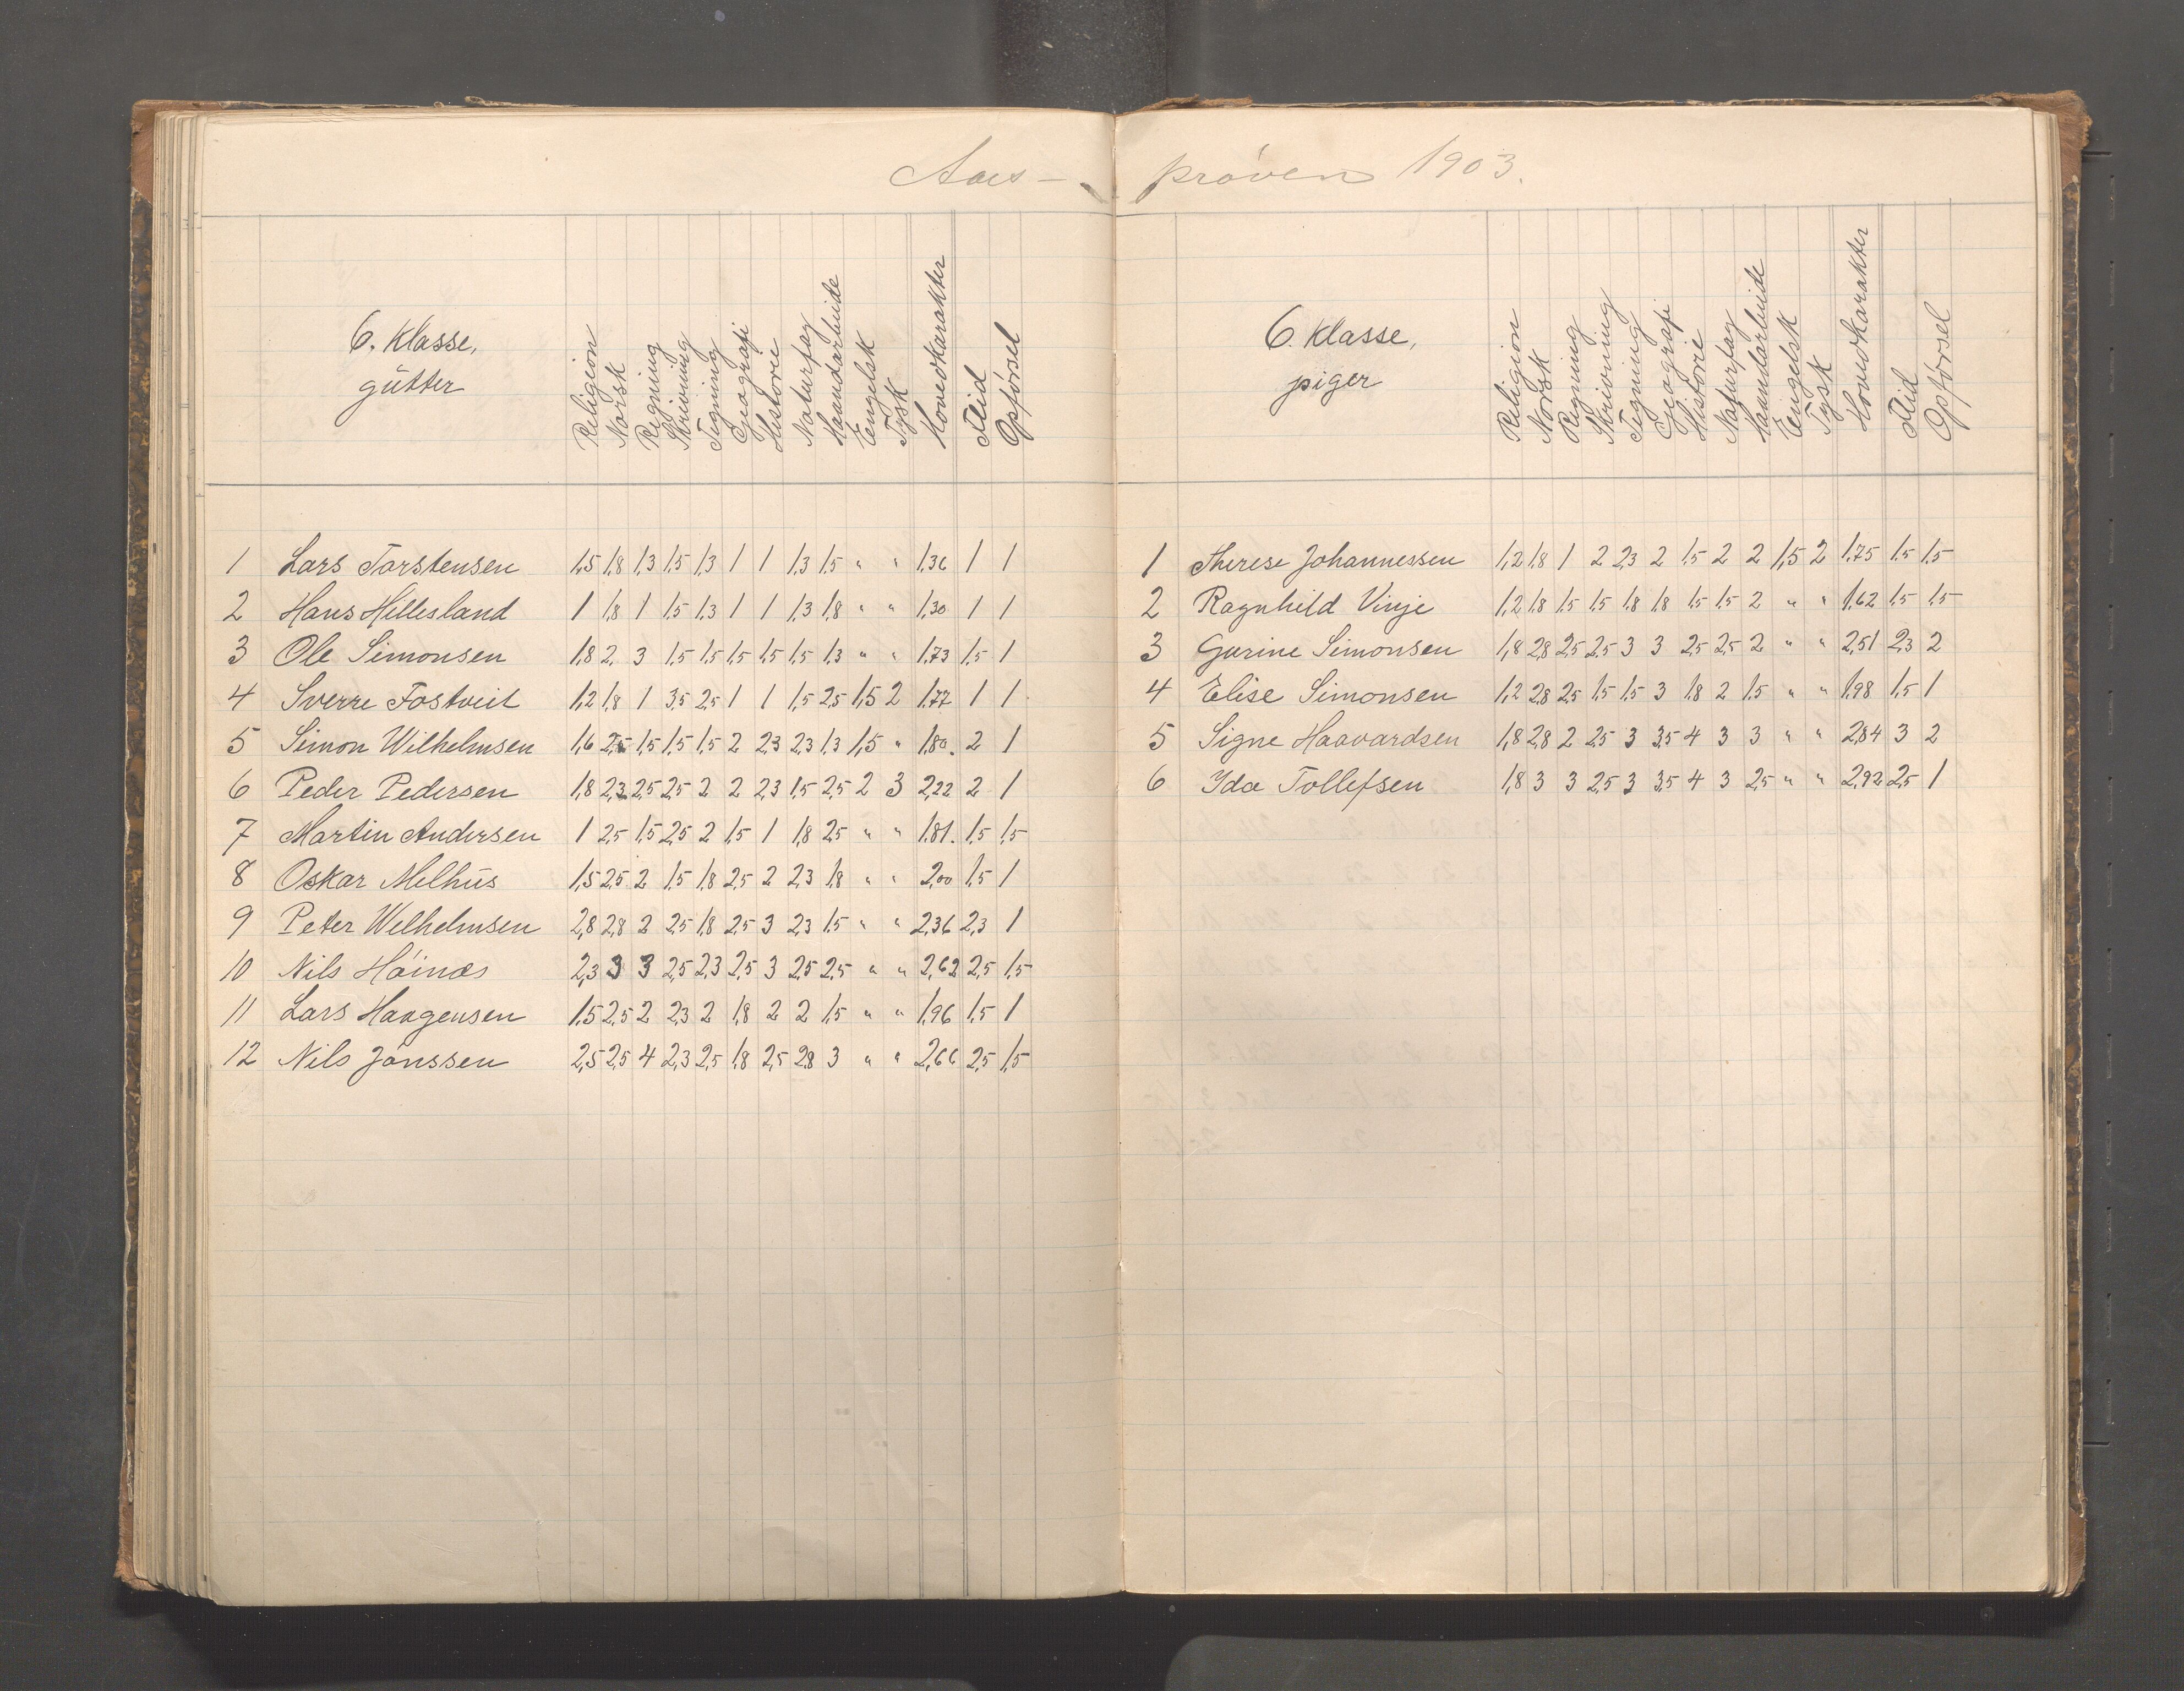 Aars-
6. Klasse,
gutter
Religion Norsk Regning Skrivning Tegning Geografi Historie Naturfag Haandarbeide Engelsk Tysk Hovedkarakter Flid Opførsel
1 Lars Torstensen 1,5 1,8 1,3 1,5 1,3 1 1 1,3 1,5 " " 1,36 1 1
2 Hans Hillesland 1 1,8 1 1,5 1,3 1 1 1,3 1,8 " " 1,30 1 1
3 Ole Simonsen 1,8 2, 3 1,5 1,5 1,5 1,5 1,5 1,3 " " 1,73 1,5 1
4 Sverre Fostveit 1,2 1,8 1 3,5 2,5 1 1 1,5 2,5 1,5 2 1,77 1 1
5 Simon Wilhelmsen 1,6 2,5 1,5 1,5 1,5 2 2,3 2,3 1,3 1,5 " 1,80. 2 1
6 Peder Pedersen 1,8 2,3 2,5 2,5 2 2 2,3 1,5 2,5 2 3 2,22 2 1
7 Martin Andersen 1 2,5 1,5 2,5 2 1,5 1 1,8 2,5 " " 1,81. 1,5 1,5
8 Oskar Melhus 1,5 2,5 2 1,5 1,8 2,5 2 2,3 1,8 " " 2,00 1,5 1
9 Peter Welhelmsen 2,8 2,8 2 2,5 1,8 2,5 3 2,3 1,5 " " 2,36 2,3 1
10 Nils Høinæs 2,3 3 3 2,5 2,3 2,5 3 2,5 2,5 " " 2,62 2,5 1,5
11 Lars Haagensen 1,5 2,5 2 2,3 2 1,8 2 2 1,5 " " 1,96 1,5 1
12 Nils Jonssen 2,5 2,5 4 2,3 2,5 1,8 2,5 2,8 3 " " 2,66 2,5 1,5
prøven 1903.
6. Klasse,
piger
Religion Norsk Regning Skrivning Tegning Geografi Historie Naturfag Haandarbeide Engelsk Tysk Hovedkarakter Flid Opførsel
1 Therese Johannessen 1,2 1,8 1 2 2,3 2 1,5 2 2 1,5 2 1,75 1,5 1,5
2 Ragnhild Vinje 1,2 1,8 1,5 1,5 1,8 1,8 1,5 1,5 2 " " 1,62 1,5 1,5
3 Gurine Simonsen 1,8 2,8 2,5 2,5 3 3 2,5 2,5 2 " " 2,51 2,3 2
4 Elise Simonsen 1,2 2,8 2,5 1,5 1,5 3 1,8 2 1,5 " " 1,98 1,5 1
5 Signe Haavardsen 1,8 2,8 2 2,5 3 3,5 4 3 3 " " 2,84 3 2
6 Ida Tollefsen 1,8 3 3 2,5 3 3,5 4 3 2,5 " " 2,92 2,5 1